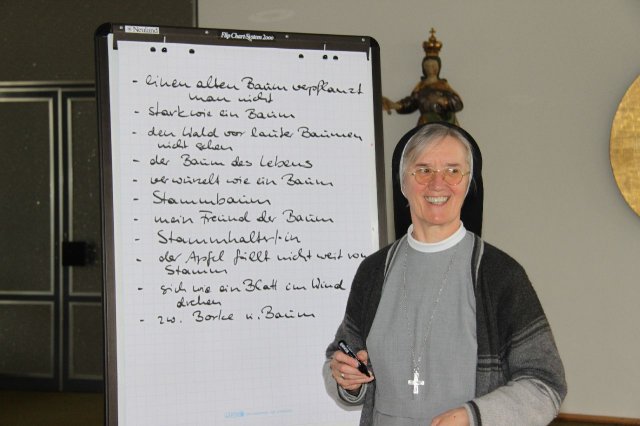 Neuland
Flip Chart System 2000
- einen alten Baum verpflanzt
man nicht
- stark wie ein Baum
- den Wald vor lauter Bäumen
nicht sehen
- der Baum des Lebens
- verwurzelt wie ein Baum
- Stammbaum
- mein Freund der Baum
- Stammhalter/in
- der Apfel fällt nicht weit vom
Stamm
- sich wie ein Blatt im Wind
drehen
- zw. Borke u. Baum